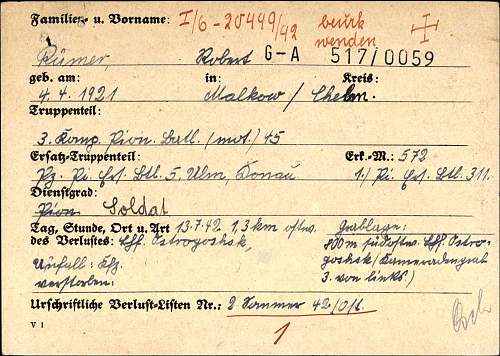 Familien- u. Vorname: I/6-20449/42 beurk
wenden
Rümer, Robert G-A 517/0059
geb. am: in: Kreis:
4. 4. 1921 Malkow / Chelm.
Truppenteil:
3. Komp. Pion. Batl. (mot.) 45
Ersatz-Truppenteil: Erk.-M.: 572
Pz. Pi. Ers. Btl. 5, Ulm, Donau 1./ Pi. Ers. Btl. 311.
Dienstgrad:
Pion Soldat
Tag, Stunde, Ort u. Art 13.7.42 1,3 km ostw. Grablage:
des Verlustes: Ostrogoshsk, 800m südostw. Ostro-
Unfall: Kfz. goshsk (Kameradengrab
verstorben: 3. von links)
Urschriftliche Verlust-Listen Nr.: 2 Sommer 42/Ost.
V 1
1